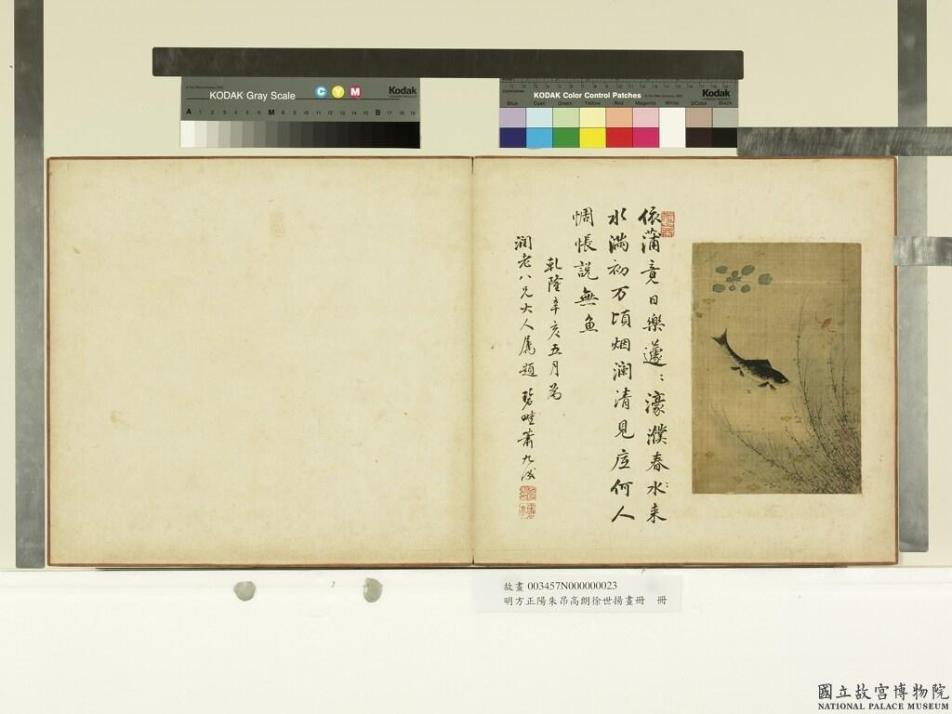 KODAK Gray Scale C Y M Kodak
A 1 2 3 4 5 6 M 8 9 10 11 12 13 14 15 B 17 18 19
KODAK Color Control Patches Kodak
Blue Cyan Green Yellow Red Magenta White 3/Color Black
依蒲竟日樂蘧〻濠濮春水〻来
水滿初万頃烟润清見底何人
惆悵説無魚
乾隆辛亥五月為
润老八兄大人属題 碧畦蕭九成
故畫 003457N000000023
明方正陽朱昂高朗徐世揚畫冊 冊
國立故宮博物院
NATIONAL PALACE MUSEUM